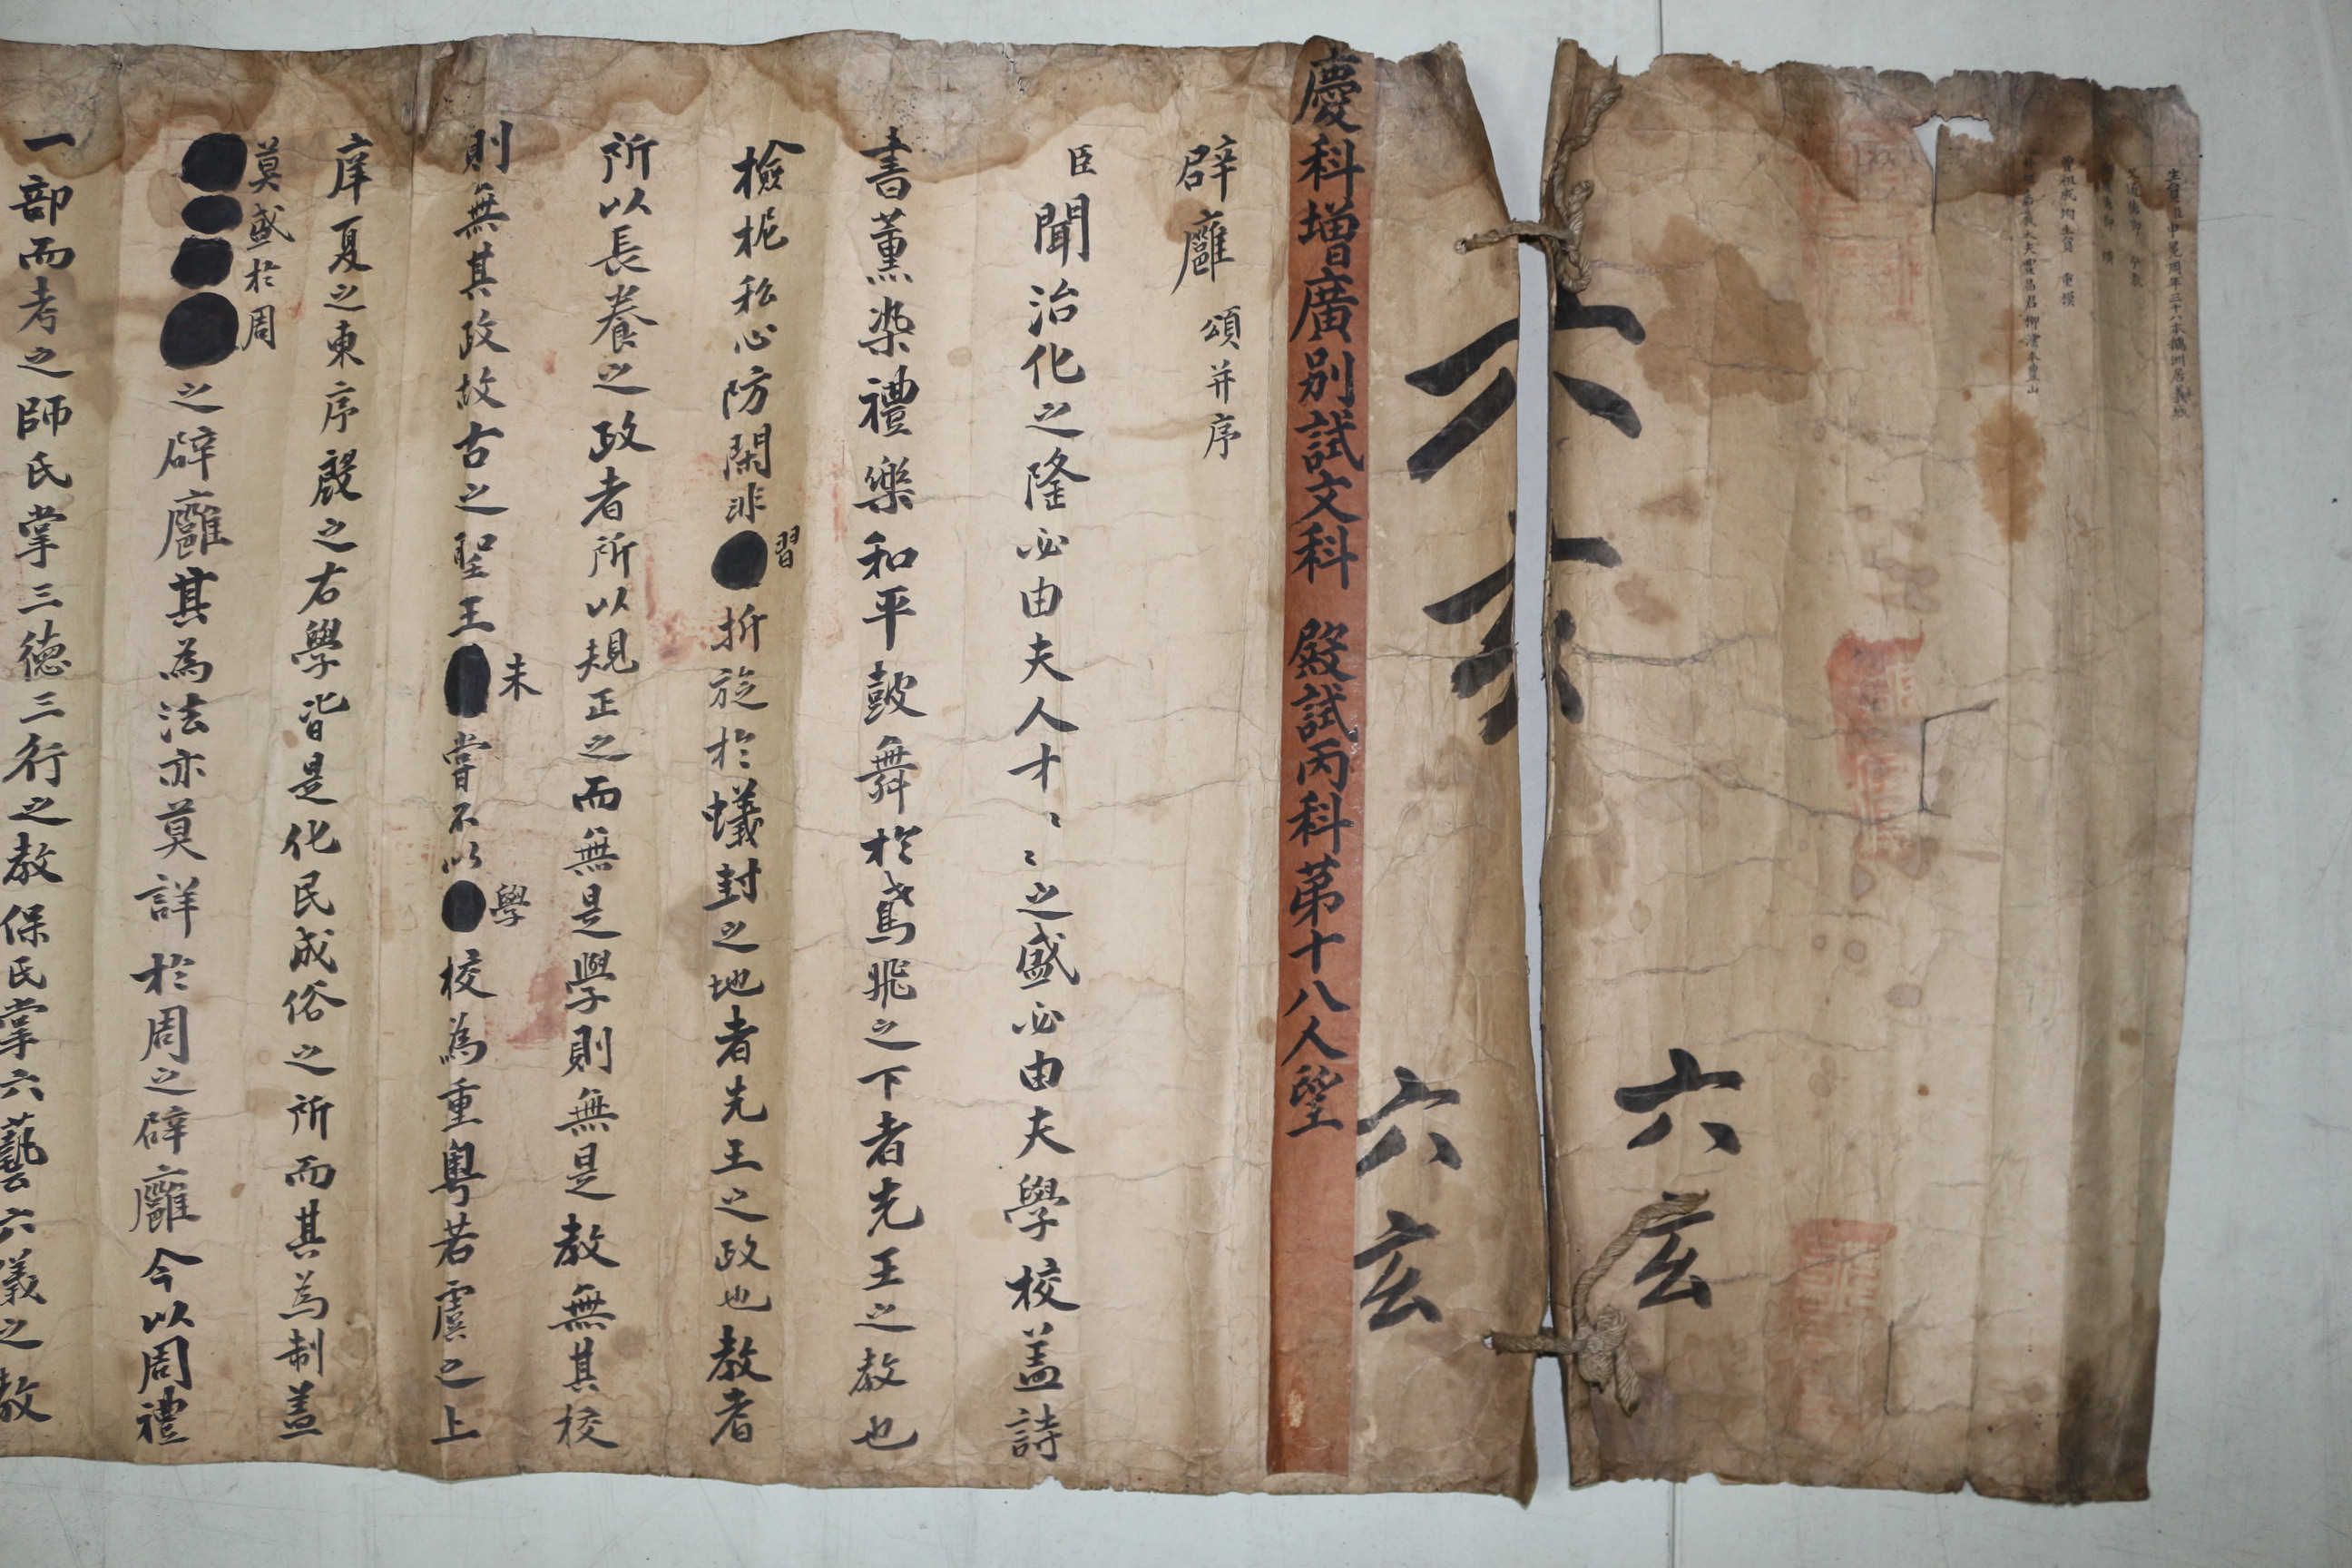 曾祖成均生員 重撗
六玄
六玄
六玄
慶科增廣別試文科 殿試丙科第十八人望
辟廱 頌并序
臣聞治化之隆必由夫人才〻〻之盛必由夫學校盖詩
書薰染禮樂和平鼓舞於鳶飛之下者先王之教也
檢柅私心防閑非習折旋於蟻封之地者先王之政也教者
所以長養之政者所以規正之而無是學則無是教無其校
則無其政故古之聖王未嘗不以學校為重粤若虞之上
庠夏之東序殷之右學皆是化民成俗之所而其為制盖
莫盛於周之辟廱其為法亦莫詳於周之辟廱今以周禮
一部而考之師氏掌三德三行之教保氏掌六藝六儀之教